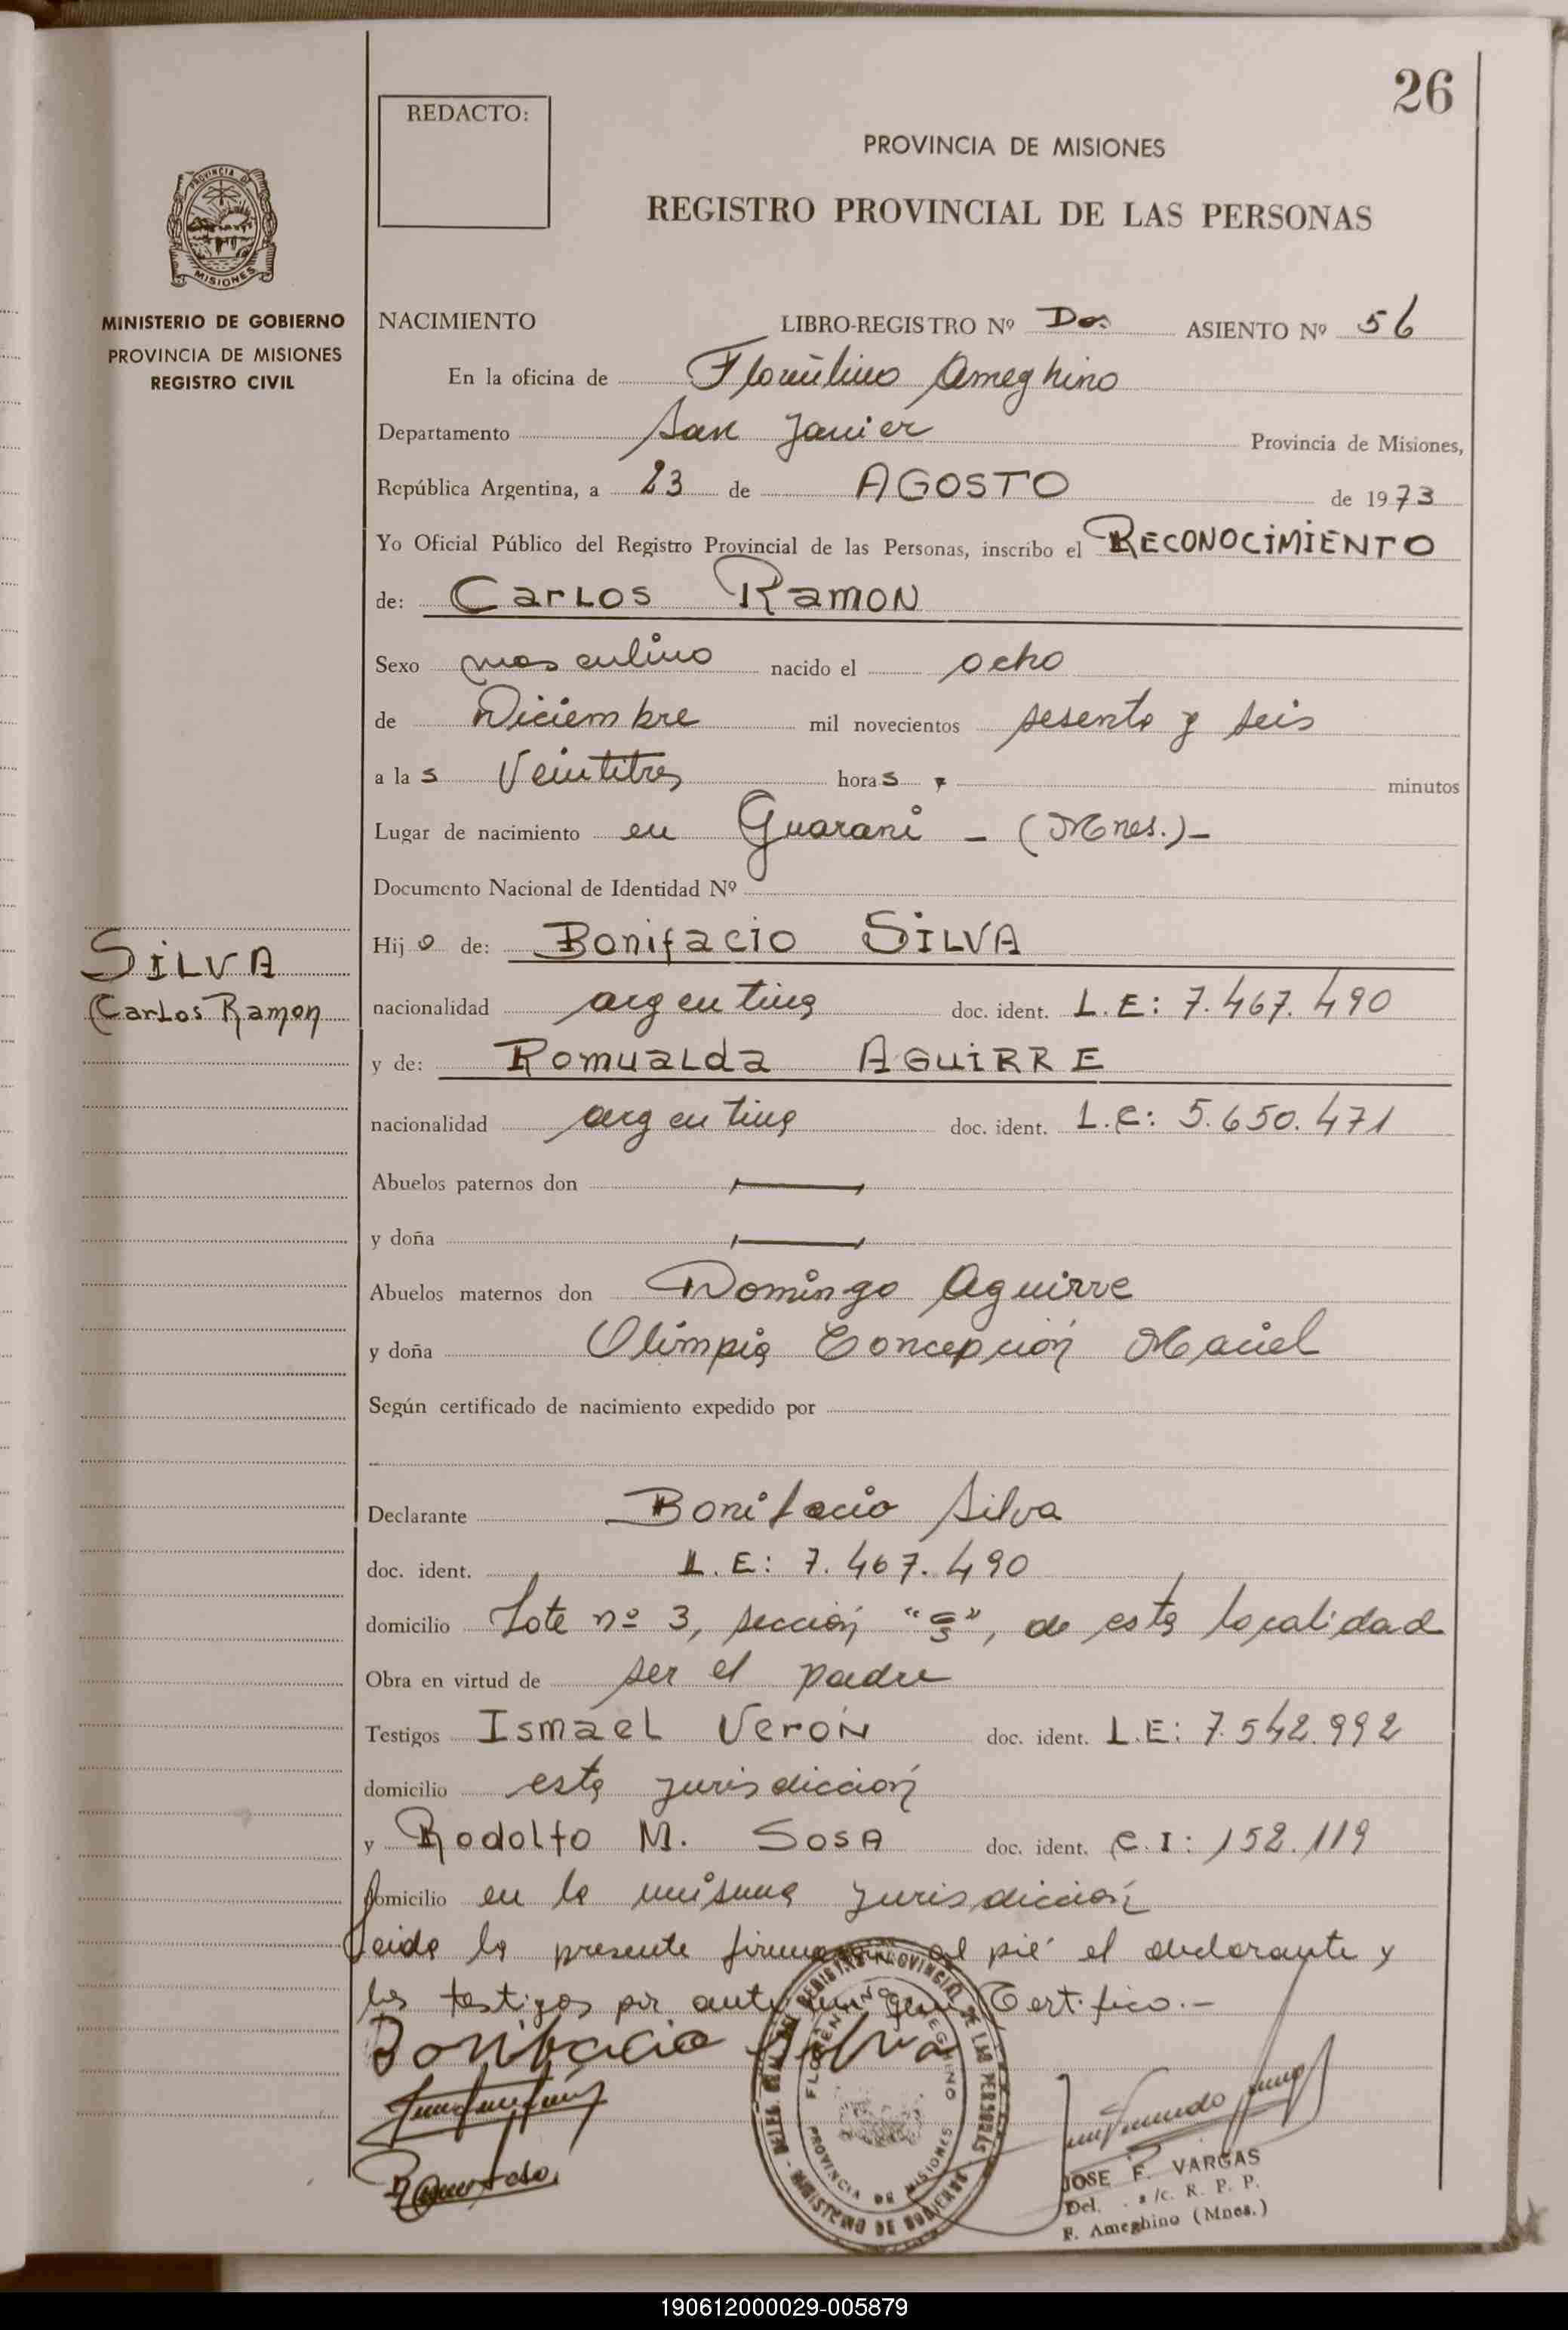 26
REDACTO:
PROVINCIA DE MISIONES
REGISTRO PROVINCIAL DE LAS PERSONAS
PROVINCIA DE
MISIONES
MINISTERIO DE GOBIERNO
PROVINCIA DE MISIONES
REGISTRO CIVIL
NACIMIENTO LIBRO-REGISTRO Nº Dos ASIENTO Nº 56
En la oficina de Florentino Ameghino
Departamento San Javier Provincia de Misiones,
República Argentina, a 23 de AGOSTO de 1973
Yo Oficial Público del Registro Provincial de las Personas, inscribo el RECONOCIMIENTO
de: Carlos Ramon
Sexo masculino nacido el ocho
de Diciembre mil novecientos sesenta y seis
a las Veintitres horas minutos
Lugar de nacimiento en Guarani - (Mnes.) -
Documento Nacional de Identidad Nº
Hijo de: Bonifacio SILVA
SILVA
Carlos Ramon
nacionalidad argentina doc. ident. L.E: 7.467.490
y de: Romualda AGUIRRE
nacionalidad argentina doc. ident. L.C: 5.650.471
Abuelos paternos don
y doña
Abuelos maternos don Domingo Aguirre
y doña Olimpia Concepción Maciel
Según certificado de nacimiento expedido por
Declarante Bonifacio Silva
doc. ident. L.E: 7.467.490
domicilio Lote nº 3, sección " ", de esta localidad
Obra en virtud de ser el padre
Testigos Ismael Verón doc. ident. L.E: 7.542.992
domicilio esta jurisdicción
y Rodolfo M. Sosa doc. ident. C.I: 152.119
domicilio en la misma jurisdicción
Leida la presente firman al pié el declarante y
los testigos por ante mi que Certifico.-
Bonifacio Silva
REGISTRO PROVINCIAL DE LAS PERSONAS
MINISTERIO DE GOBIERNO
FLORENTINO AMEGHINO
PROVINCIA DE MISIONES
JOSE F. VARGAS
Del. a/c. R. P. P.
F. Ameghino (Mnes.)
190612000029-005879